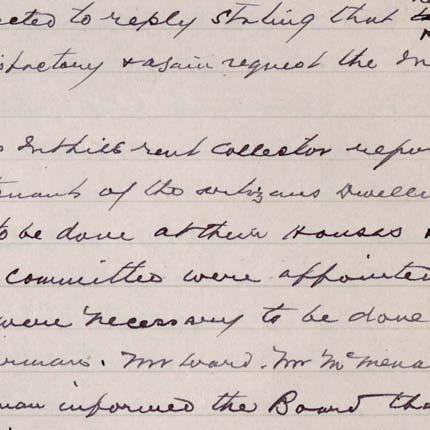 cted to reply stating that
isfactory & again request the In
rent collector repo
tenants of the artizans Dwelli
to be done at their Houses
committee were appointed
were necessary to be done
irman. Mr Ward. Mr McMena
man informed the Board tha